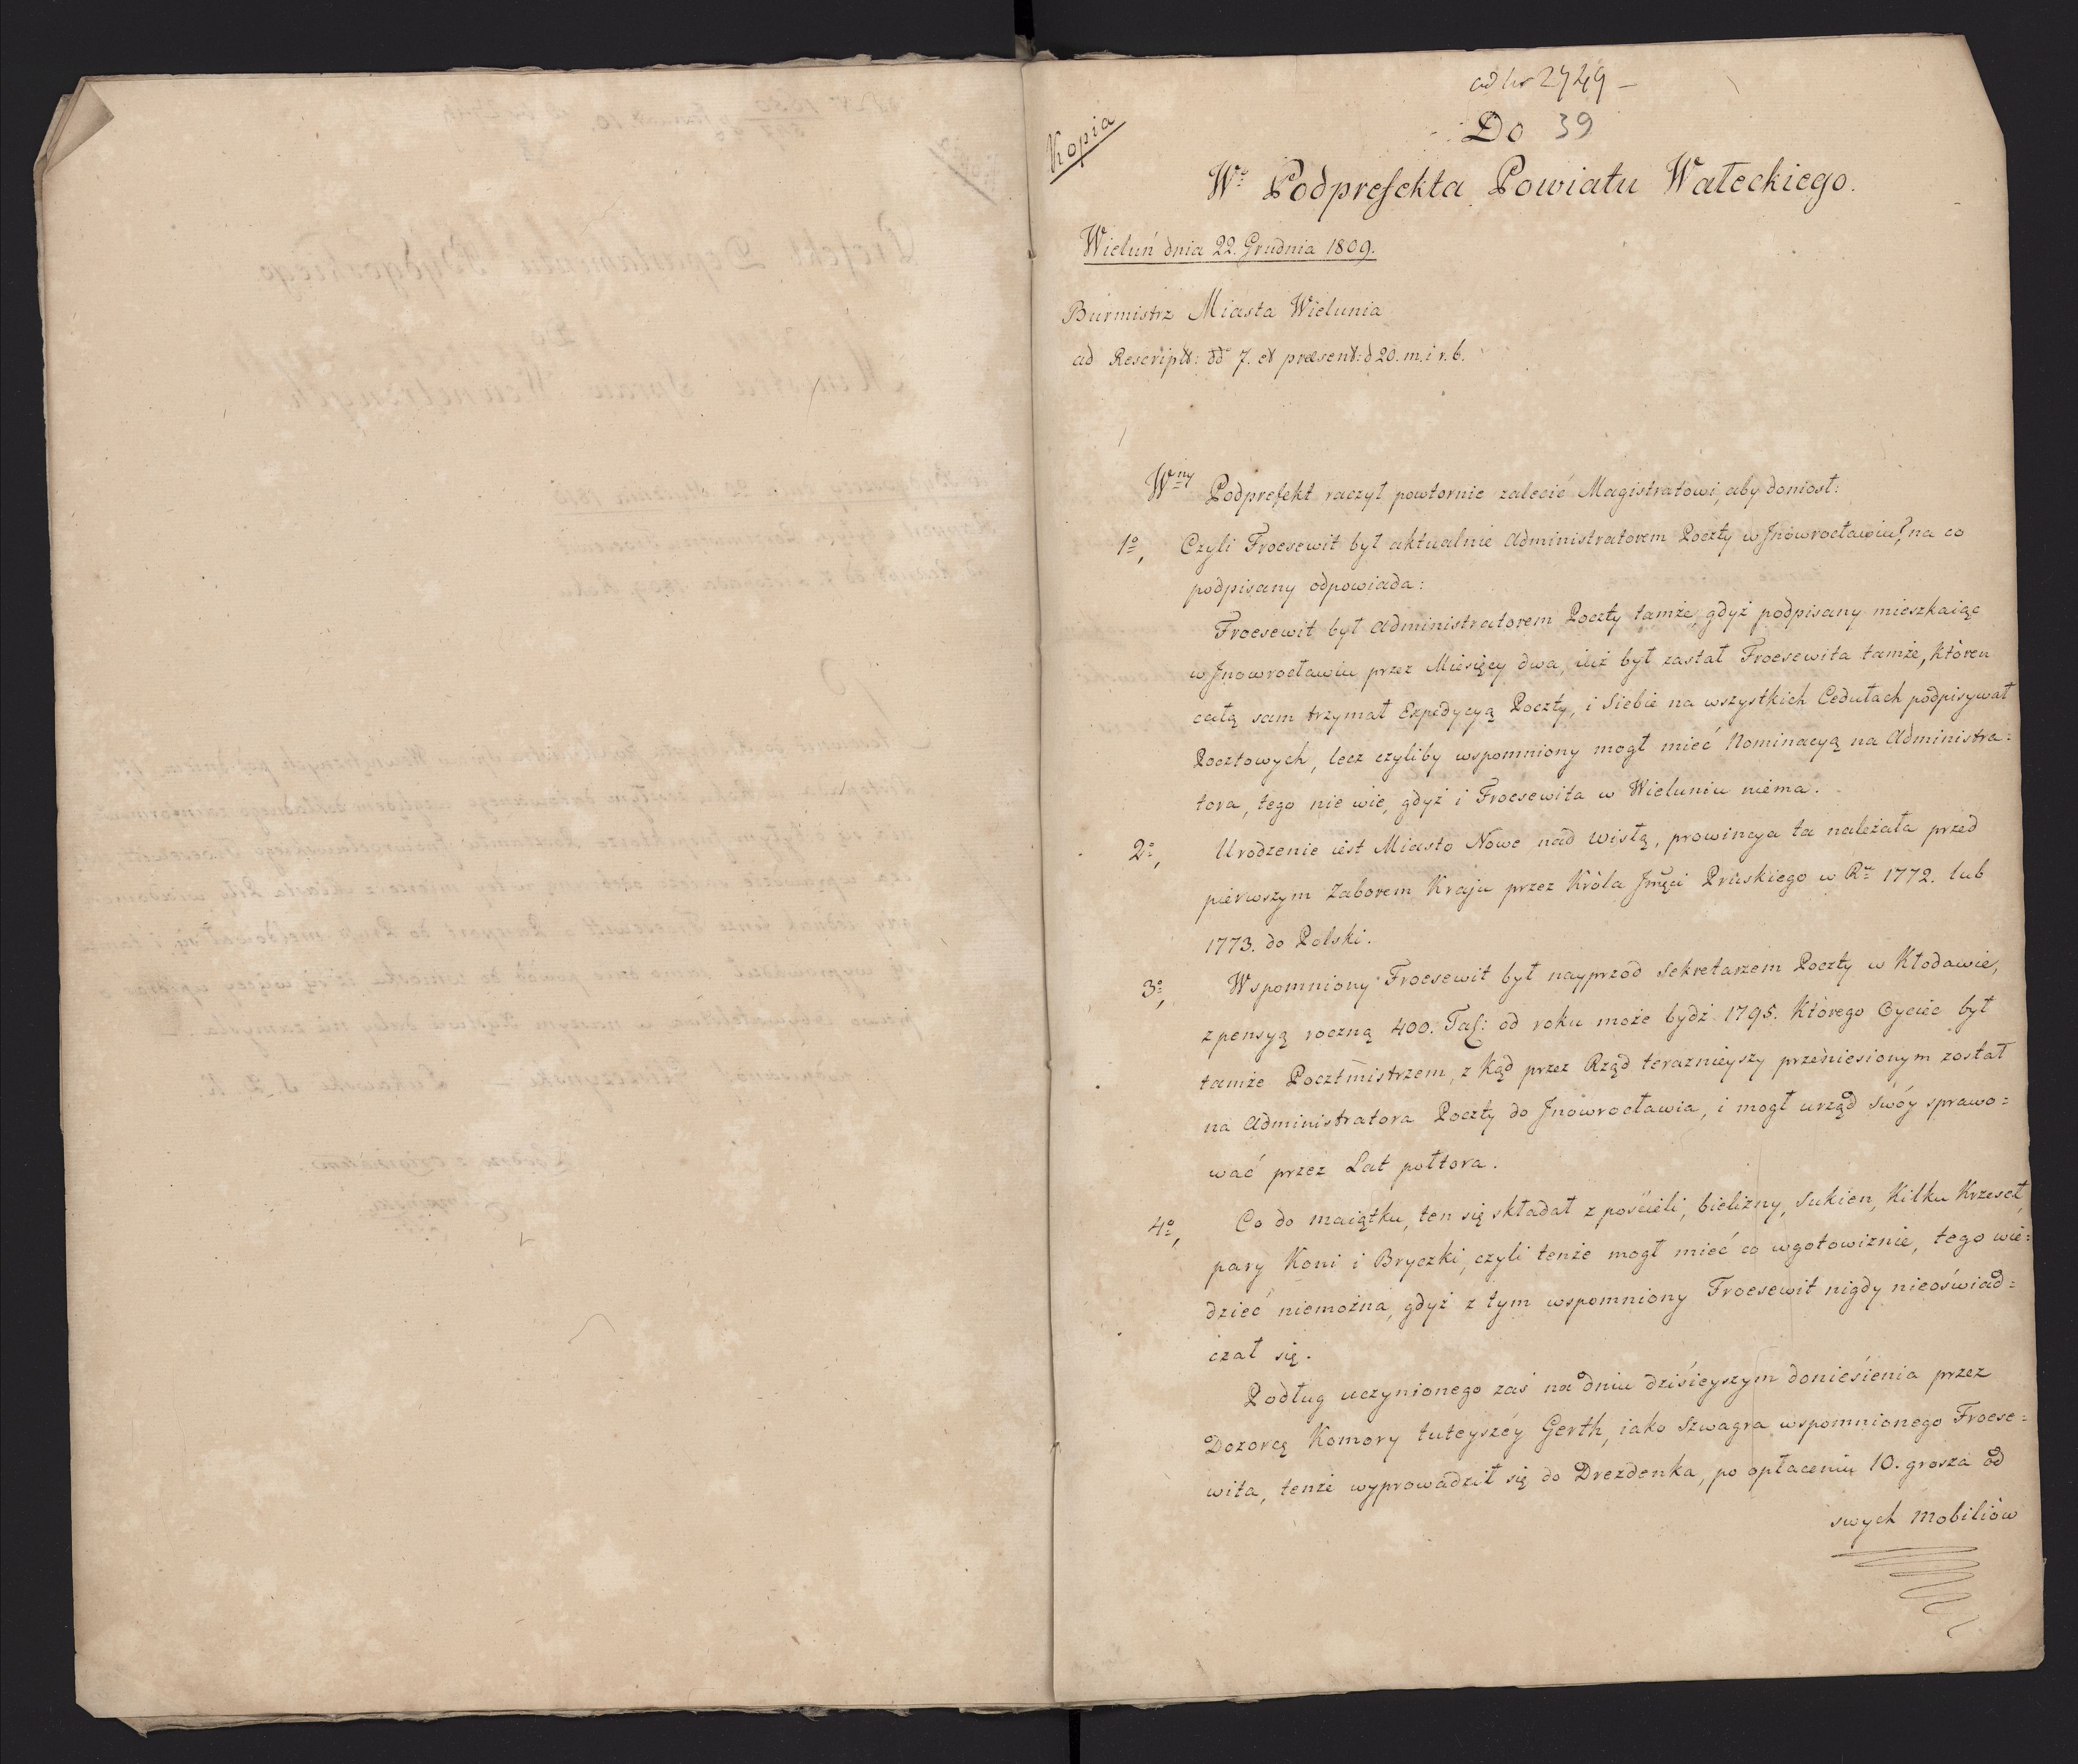 ad nr 2749 –
Do 39
Kopia
Wº Podprefekta Powiatu Wałeckiego.
Wieluń dnia 22. Grudnia 1809.
Burmistrz Miasta Wielunia
ad Rescript: dd 7. et præsent: d 20. m. i r. b.
Wny Podprefekt raczył powtornie zalecić Magistratowi, aby doniosł:
1º, Czyli Froesewit był aktualnie Administratorem Poczty w Jnowrocławiu? na co
podpisany odpowiada:
Froesewit był Administratorem Poczty tamże, gdyż podpisany mieszkaiąc
w Jnowrocławiu przez Miesięcy dwa, iuż był zastał Froesewita tamże, któren
całą sam trzymał Expedycyą Poczty, i Siebie na wszystkich Cedułach podpisywał
Pocztowych, lecz czyliby wspomniony mogł mieć Nominacyą na Administra=
tora, tego nie wie, gdyż i Froesewita w Wieluniu niema.
2º, Urodzenie iest Miasto Nowe nad Wisłą, prowincya ta należała przed
pierwszym Zaborem Kraju przez Króla Jmści Pruskiego w Ru 1772. lub
1773. do Polski.
3º, Wspomniony Froesewit był nayprzod Sekretarzem Poczty w Kłodawie,
z pensyą roczną 400. Tal: od roku może bydź 1795. Którego Oyciec był
tamże Pocztmistrzem, z kąd przez Rząd terazńieyszy przeniesionym został
na Administratora Poczty do Jnowrocławia, i mogł urząd swóy sprawo=
wać przez Lat połtora.
4º, Co do maiątku, ten się składał z pościeli, bielizny, Sukien, Kilku Krzeseł,
pary Koni i Bryczki, czyli tenże mogł mieć co wgotowiznie, tego wie=
dzieć niemożna, gdyż z tym wspomniony Froesewit nigdy nieoświad=
czał się.
Podług uczynionego zaś na dniu dzisieyszym doniesienia przez
Dozorcą Komory tuteyszéy Gerth, iako Szwagra wspomnionego Froese=
wita, tenże wyprowadził się do Drezdenka, po opłaceniu 10. grosza od
swych Mobiliów